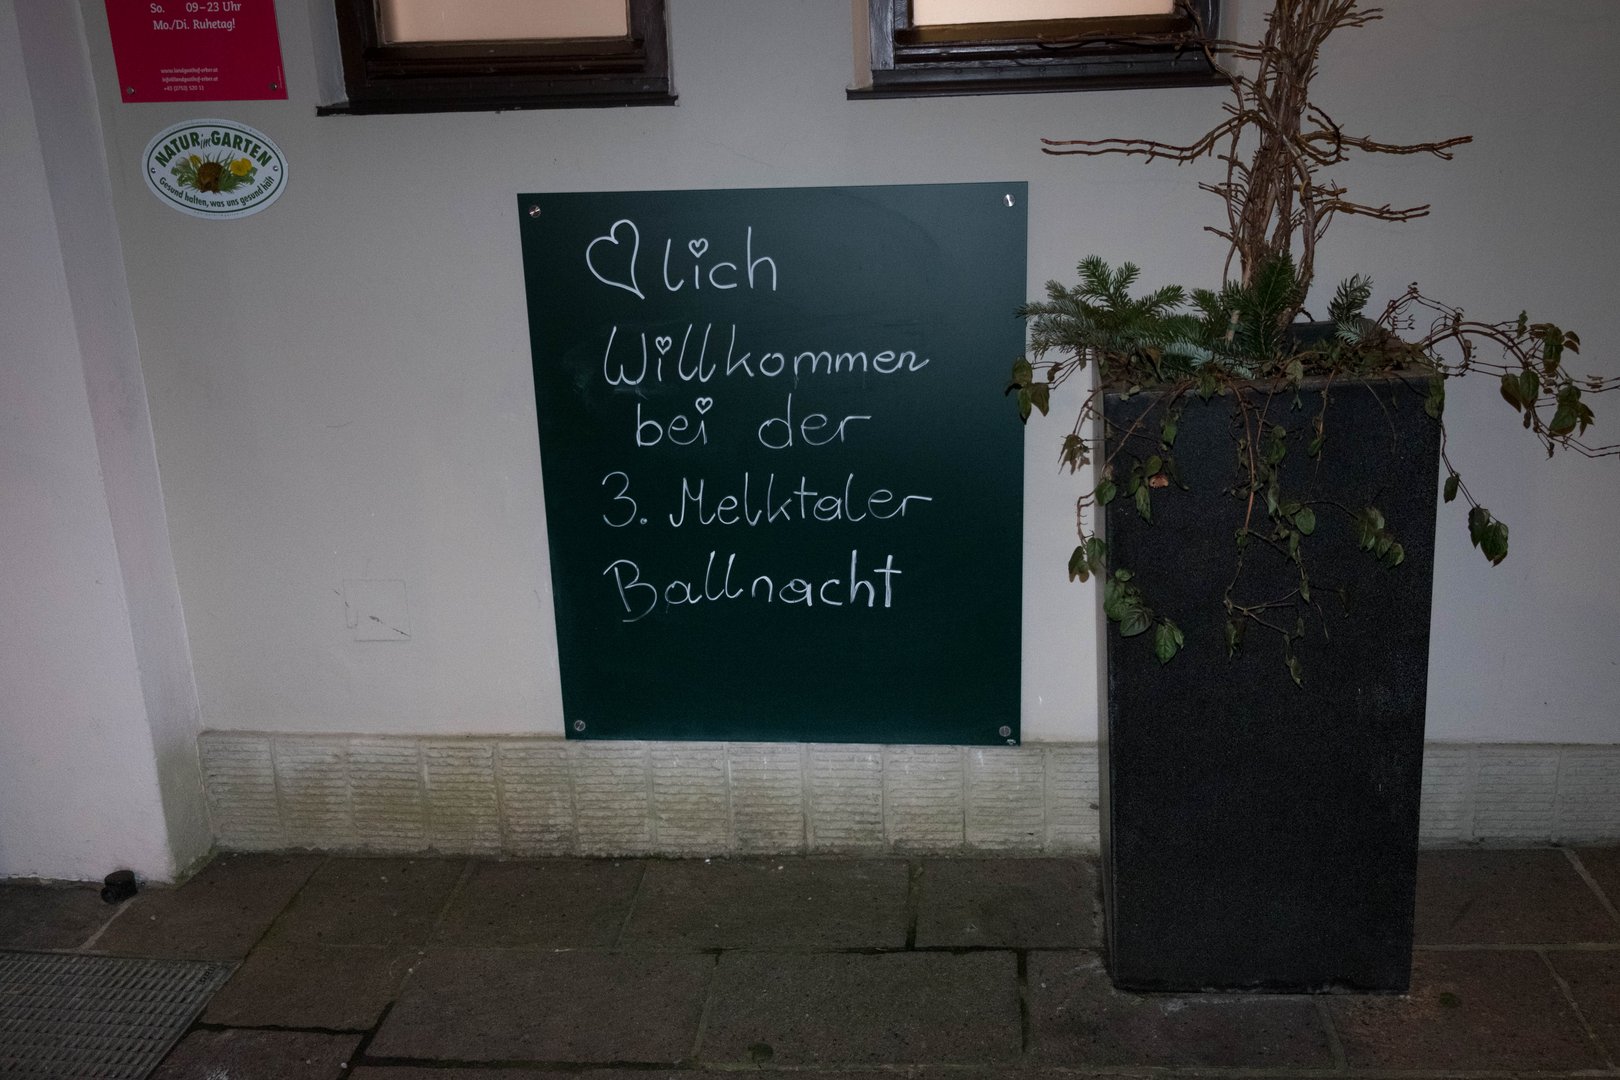 So. 09–23 Uhr
Mo./Di. Ruhetag!
www.landgasthof-erber.at
info@landgasthof-erber.at
+43 (2752) 520 11
NATUR im GARTEN
Gesund halten, was uns gesund hält
♡lich
Willkommen
bei der
3. Melktaler
Ballnacht